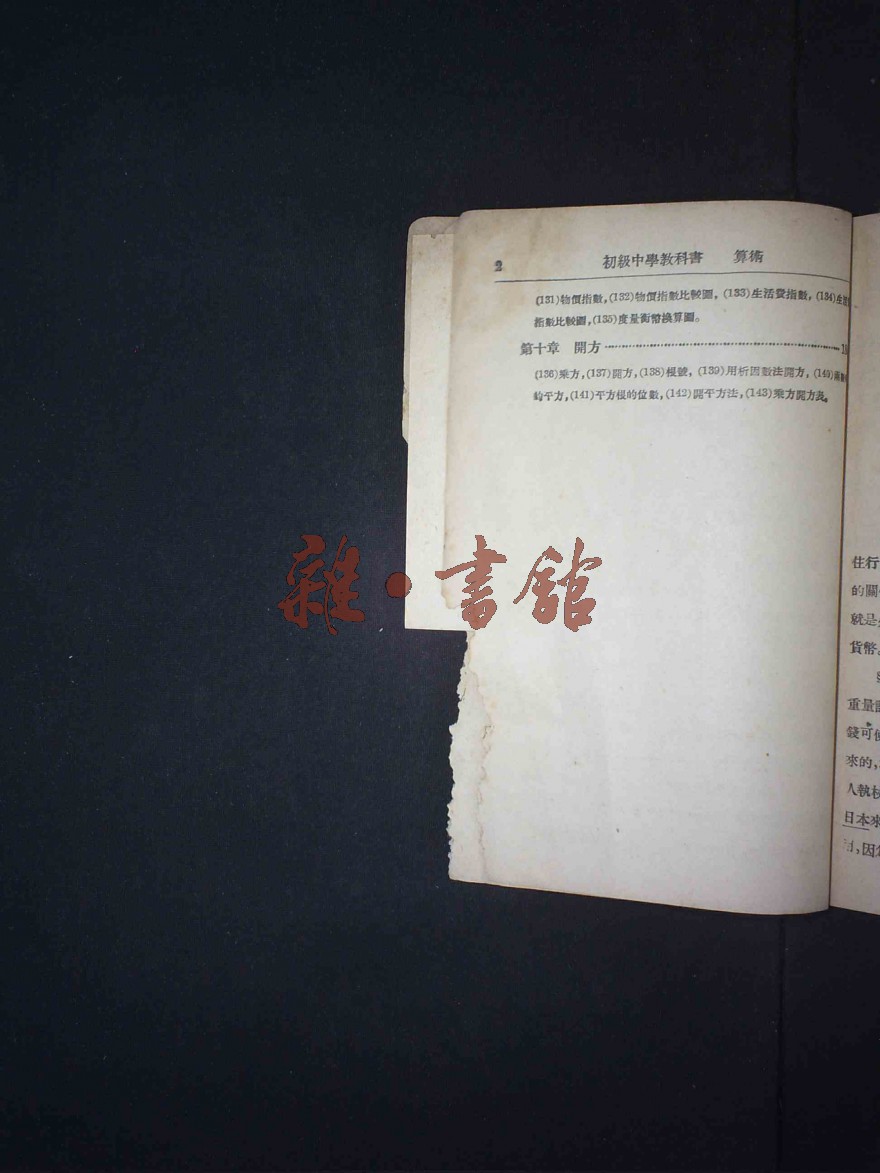 2
初級中學教科書 算術
(131)物價指數,(132)物價指數比較圖,(133)生活費指數,(134)生活
指數比較圖,(135)度量衡幣換算圖。
第十章 開方
(136)乘方,(137)開方,(138)根號,(139)用析因數法開方,(140)兩數
的平方,(141)平方根的位數,(142)開平方法,(143)乘方開方表。
雜·書館
住行
的關
就是
貨幣。
重量
錢可
來的,
人執
日本來
,因